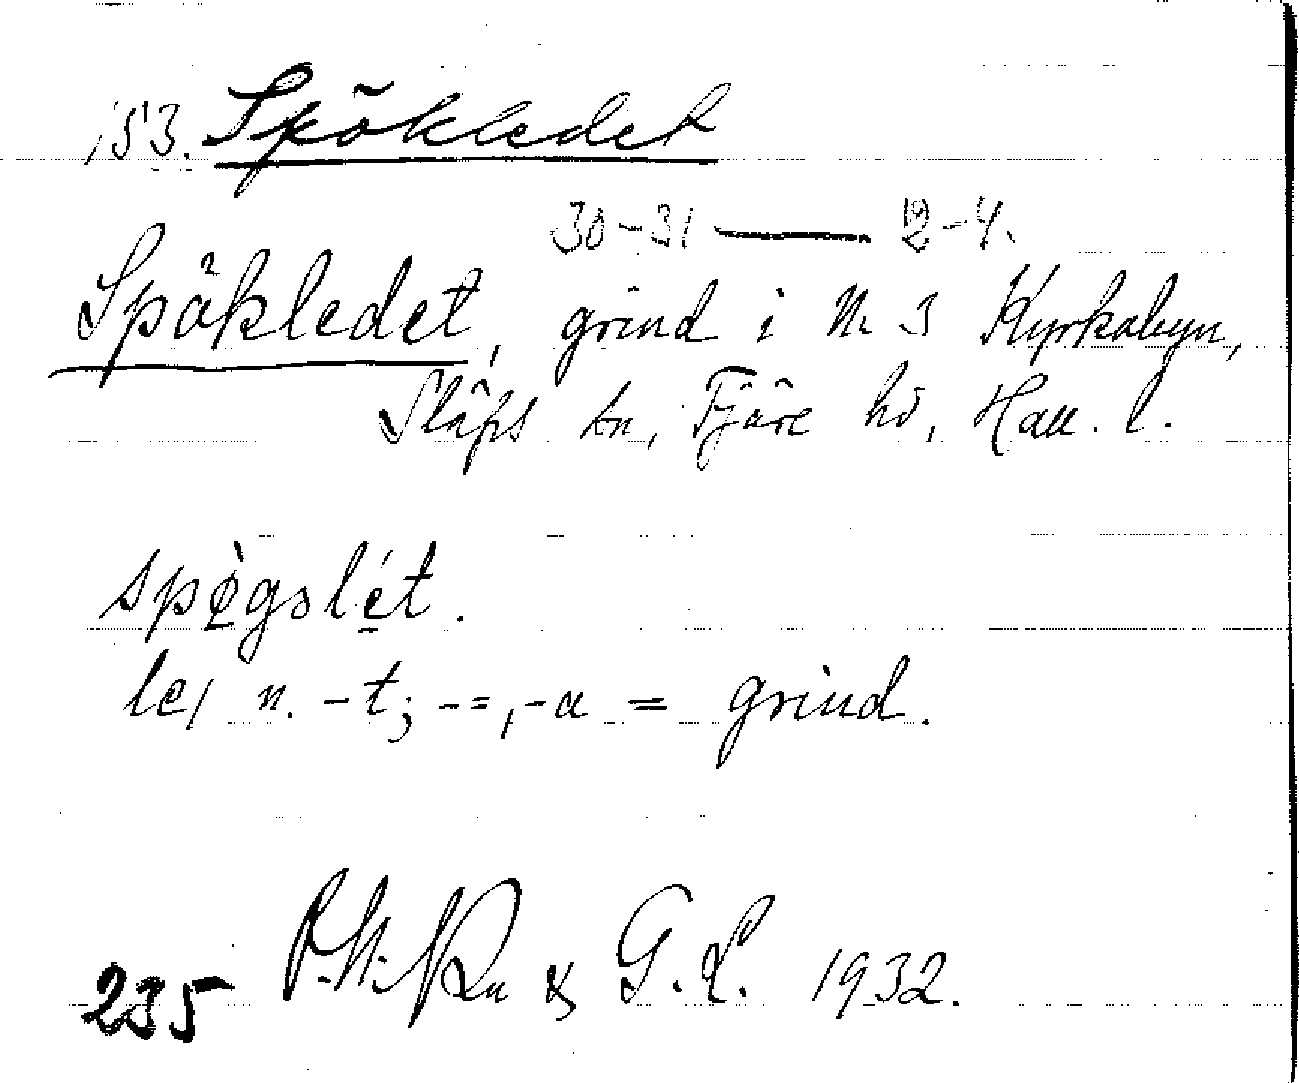 153. Spökledet
30-31 — 12-4.
Spökledet, grind i N. 3 Kyrkobyn,
Släps sn, Fjäre hd, Hall. l.
spø̀gslét.
le, n. -t; -=, -a = grind.
235 & G.L. 1932.